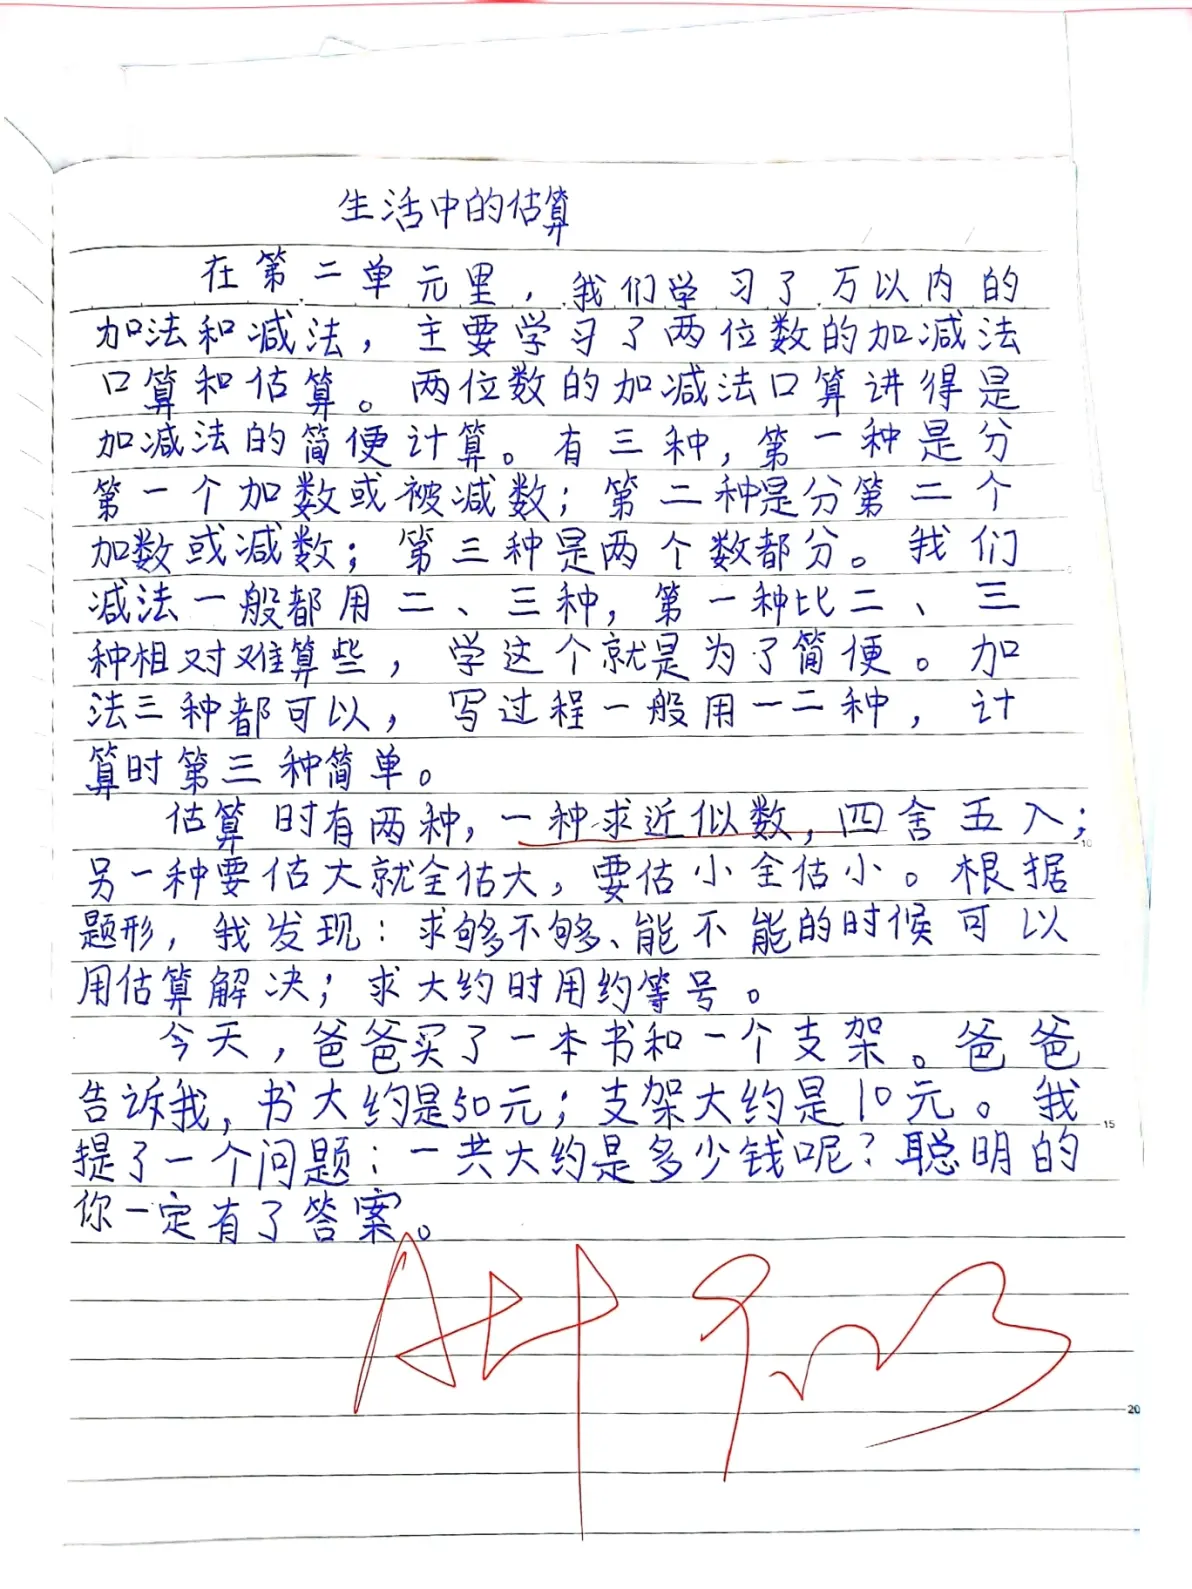 生活中的估算
在第二单元里，我们学习了万以内的
加法和减法，主要学习了两位数的加减法
口算和估算。两位数的加减法口算讲得是
加减法的简便计算。有三种，第一种是分
第一个加数或被减数；第二种是分第二个
加数或减数；第三种是两个数都分。我们
减法一般都用二、三种，第一种比二、三
种相对难算些，学这个就是为了简便。加
法三种都可以，写过程一般用一二种，计
算时第三种简单。
估算时有两种，一种求近似数，四舍五入；
另一种要估大就全估大，要估小全估小。根据
题形，我发现：求够不够、能不能的时候可以
用估算解决；求大约时用约等号。
今天，爸爸买了一本书和一个支架。爸爸
告诉我，书大约是50元；支架大约是10元。我
提了一个问题：一共大约是多少钱呢？聪明的
你一定有了答案。
10
15
20